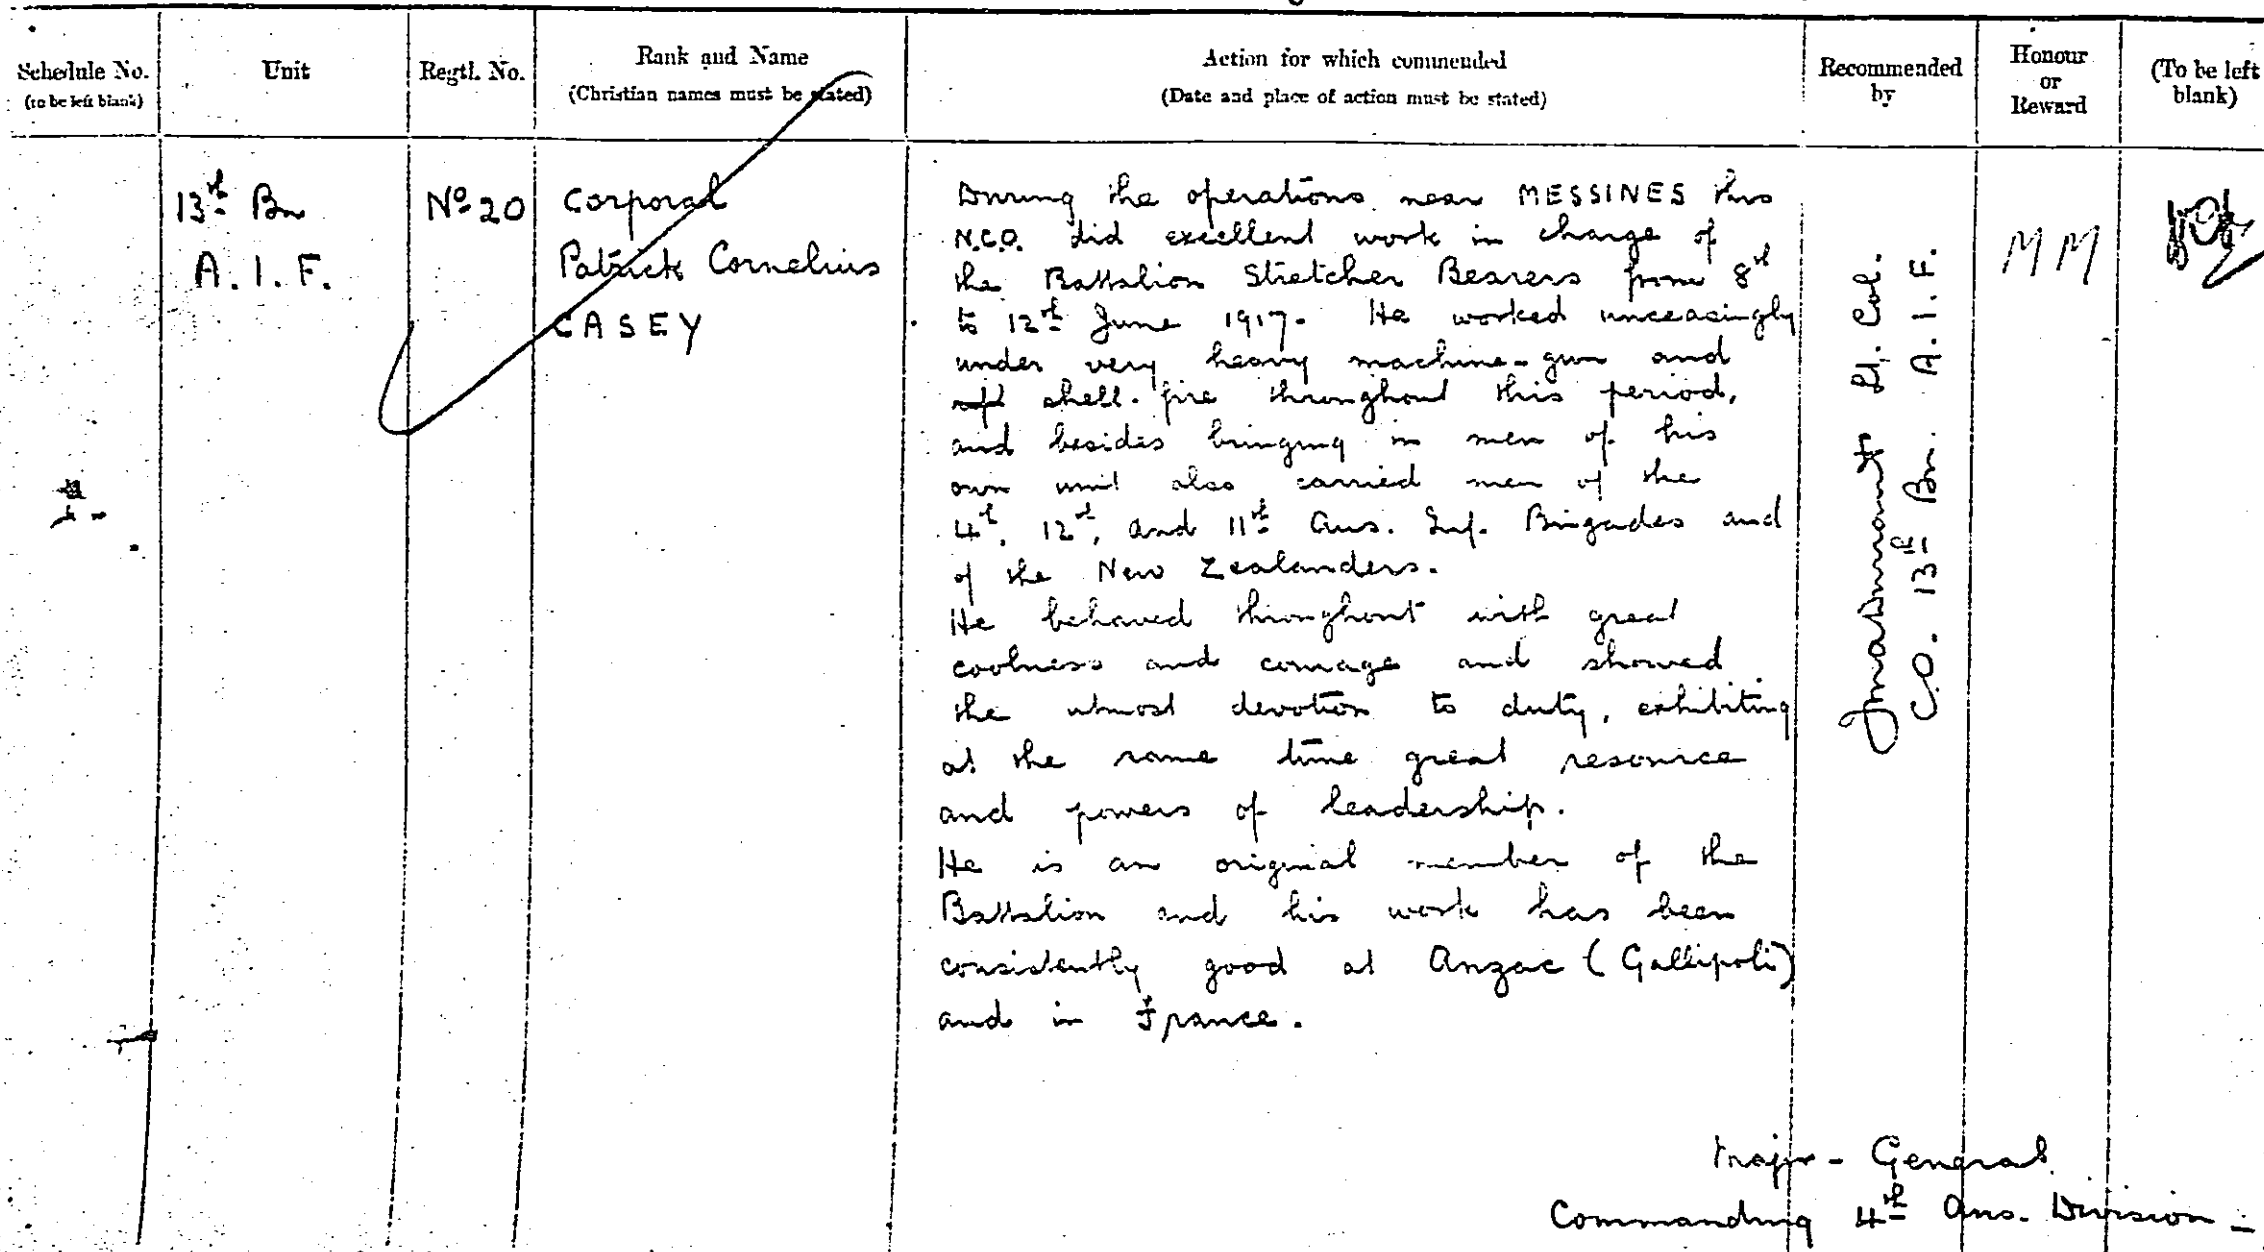 Schedule No.
(to be left blank)
Unit
Regtl. No.
Rank and Name
(Christian names must be stated)
Action for which commended
(Date and place of action must be stated)
Recommended
by
Honour
or
Reward
(To be left
blank)
13th Bn
A.I.F.
No 20
Corporal
Patrick Cornelius
CASEY
During the operations near MESSINES this
N.C.O. did excellent work in charge of
the Battalion Stretcher Bearers from 8th
to 12th June 1917. He worked unceasingly
under very heavy machine-gun and
shell-fire throughout this period,
and besides bringing in men of his
own unit also carried men of the
4th, 12th, and 11th Aus. Inf. Brigades and
of the New Zealanders.
He behaved throughout with great
coolness and courage and showed
the utmost devotion to duty, exhibiting
at the same time great resource
and powers of leadership.
He is an original member of the
Battalion and his work has been
consistently good at Anzac (Gallipoli)
and in France.
Lt. Col.
C.O. 13th Bn. A.I.F.
MM
Major-General
Commanding 4th Aus. Division-